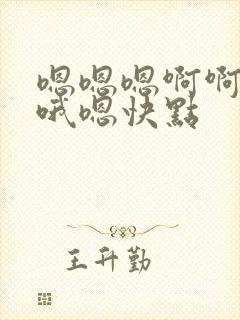 嗯嗯嗯啊啊
哦嗯快點
王升勤